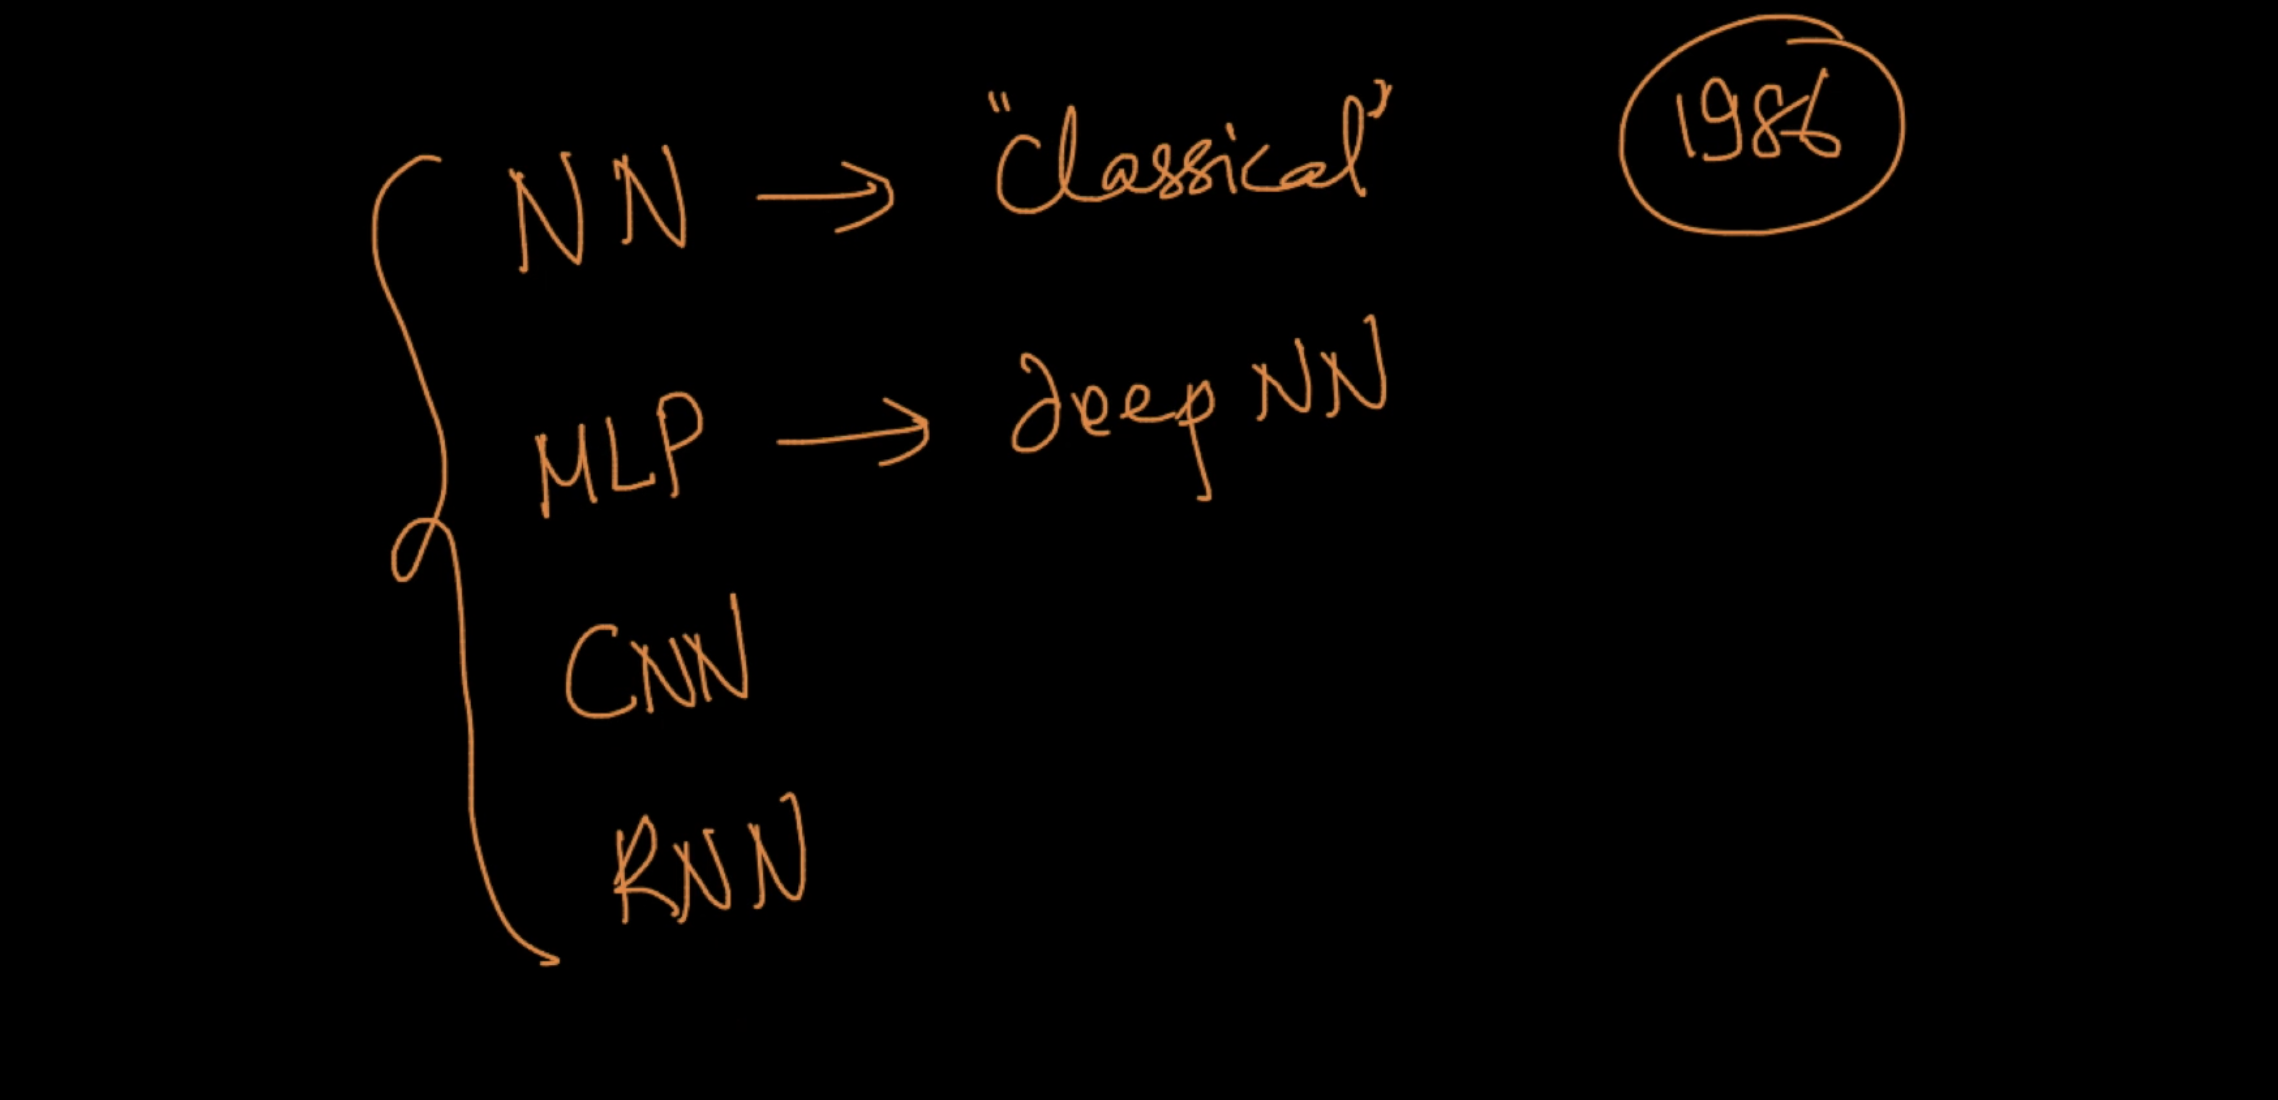 NN → "Classical" 1986
MLP → Deep NN
CNN
RNN